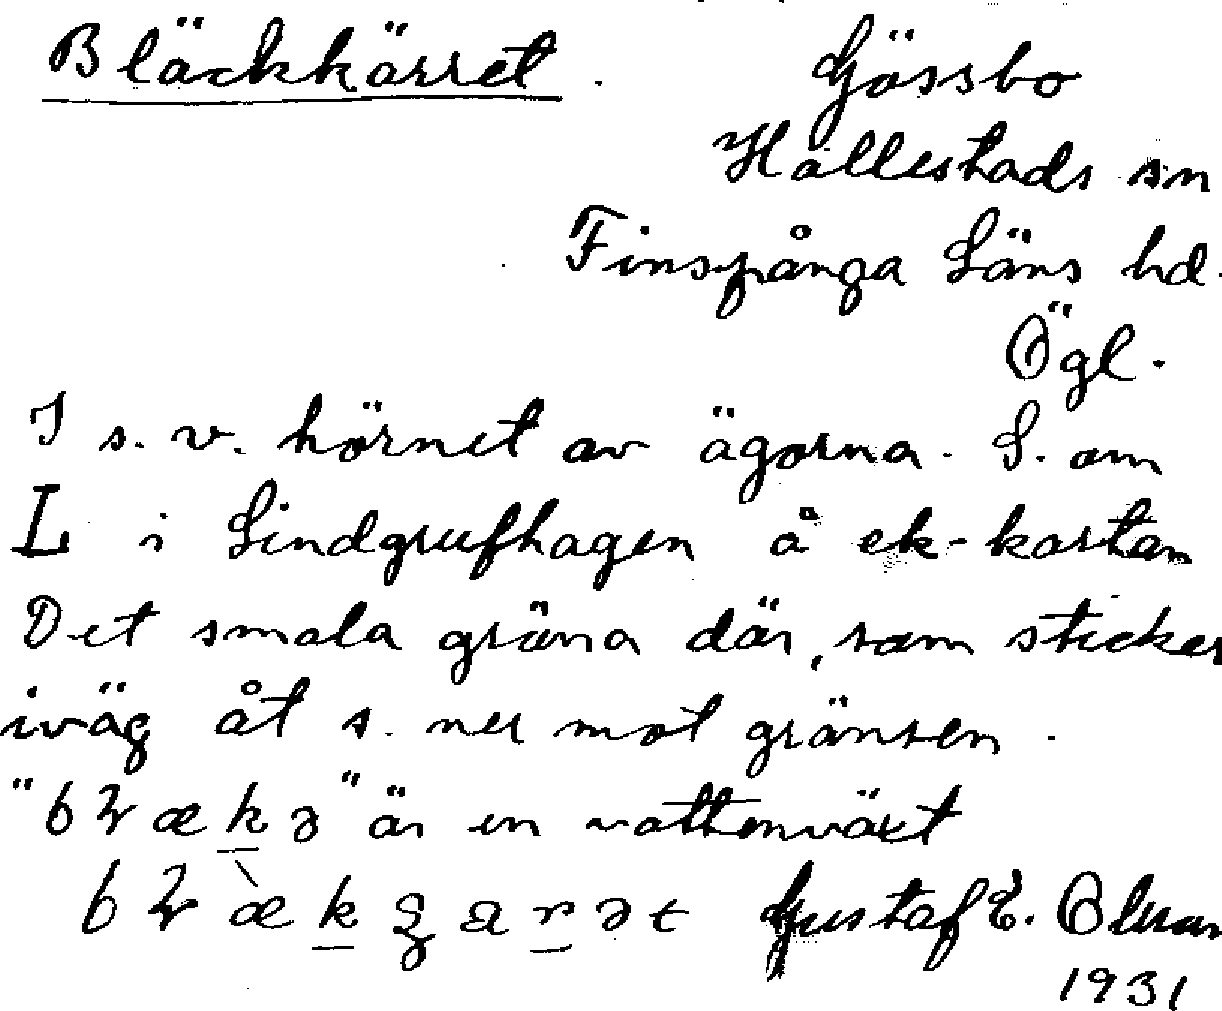 Bläckkärret. Gössbo
Hällestads sn
Finspånga Läns hd.
Ögl.
I s.v. hörnet av ägorna. S. om
L i Lindgrufhagen å ek-kartan
Det smala gröna där, som sticker
iväg åt s. ner mot gränsen.
är en vattenväxt
Gustaf E. Olsson
1931